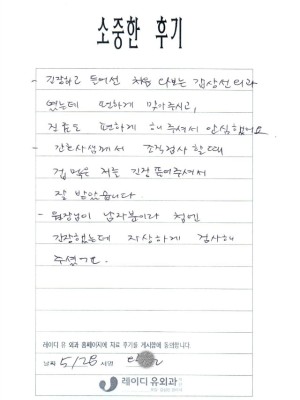 소중한 후기
- 긴장하고 들어선 처음 와보는 갑상선 외과
였는데 편하게 맞아주시고,
진료도 편하게 해주셔서 안심했어요
- 간호사샘께서 조직검사 할때
겁먹은 저를 긴장 풀어주셔서
잘 받았습니다
- 원장님이 남자분이라 첨엔
긴장했는데 자상하게 검사해
주셨구요.
레이디 유 외과 홈페이지에 치료 후기를 게시함에 동의합니다.
날짜 5/28 서명
레이디 유외과